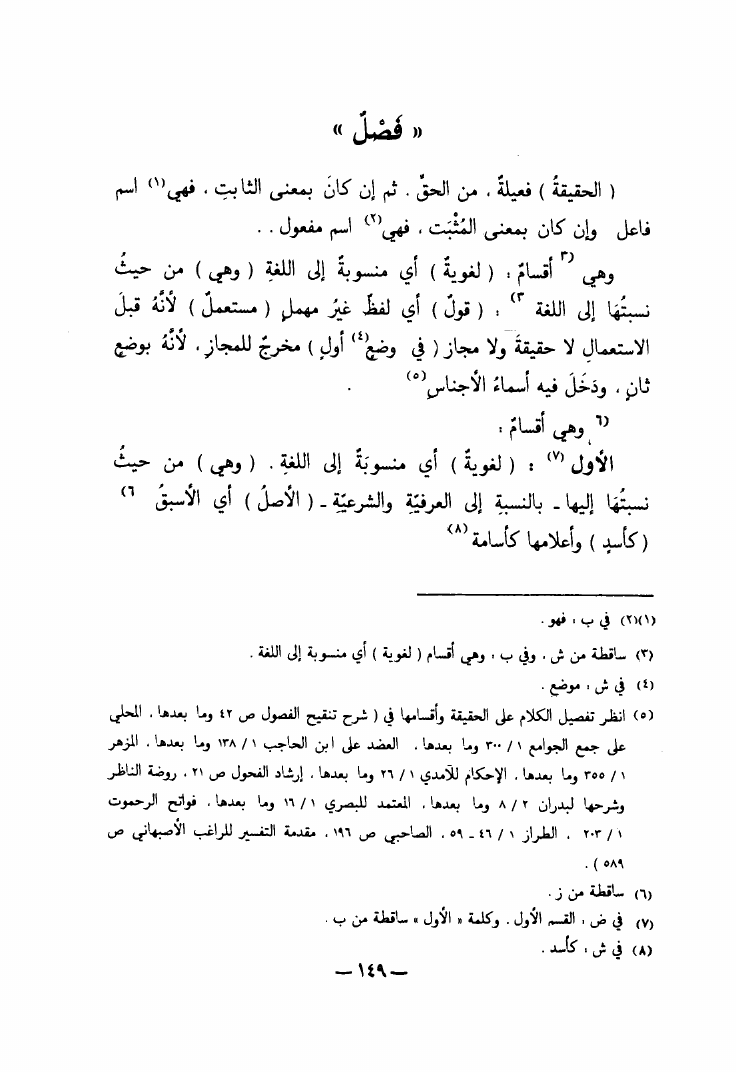 « فَصْلٌ »
( الحقيقةُ ) فعيلةٌ ، من الحقِّ . ثم إن كانَ بمعنى الثابتِ ، فهي(١) اسم
فاعل وإن كان بمعنى المُثْبَت ، فهي(٢) اسم مفعول . .
وهي (٣ أقسامٌ : ( لغويةٌ ) أي منسوبةٌ إلى اللغةِ ( وهي ) من حيثُ
نسبتُهَا إلى اللغة ٣) : ( قولٌ ) أي لفظٌ غيرُ مهملٍ ( مستعملٌ ) لأنَّهُ قبلَ
الاستعمالِ لا حقيقةَ ولا مجاز ( في وضعٍ(٤) أولٍ ) مخرجٌ للمجازِ ، لأنَّهُ بوضعٍ
ثانٍ ، ودَخَلَ فيه أسماءُ الأجناسِ(٥) .
(٦ وهي أقسامٌ :
الأول (٧) : ( لغويةٌ ) أي منسوبَةٌ إلى اللغةِ . ( وهي ) من حيثُ
نسبتُهَا إليها ـ بالنسبةِ إلى العرفيّةِ والشرعيّةِ ـ ( الأصلُ ) أي الأسبقُ ٦)
( كأسدٍ ) وأعلامها كأسامة (٨)
(١)(٢) في ب : فهو .
(٣) ساقطة من ش . وفي ب : وهي أقسام ( لغوية ) أي منسوبة إلى اللغة .
(٤) في ش : موضع .
(٥) انظر تفصيل الكلام على الحقيقة وأقسامها في ( شرح تنقيح الفصول ص ٤٢ وما بعدها ، المحلي
على جمع الجوامع ١ / ٣٠٠ وما بعدها ، العضد على ابن الحاجب ١ / ١٣٨ وما بعدها ، المزهر
١ / ٣٥٥ وما بعدها ، الإحكام للآمدي ١ / ٢٦ وما بعدها ، إرشاد الفحول ص ٢١ ، روضة الناظر
وشرحها لبدران ٢ / ٨ وما بعدها ، المعتمد للبصري ١ / ١٦ وما بعدها ، فواتح الرحموت
١ / ٢٠٣ ، الطراز ١ / ٤٦ ـ ٥٩ ، الصاحبي ص ١٩٦ ، مقدمة التفسير للراغب الأصبهاني ص
٥٨٩ ) .
(٦) ساقطة من ز .
(٧) في ض : القسم الأول . وكلمة « الأول » ساقطة من ب .
(٨) في ش : كأسد .
— ١٤٩ —